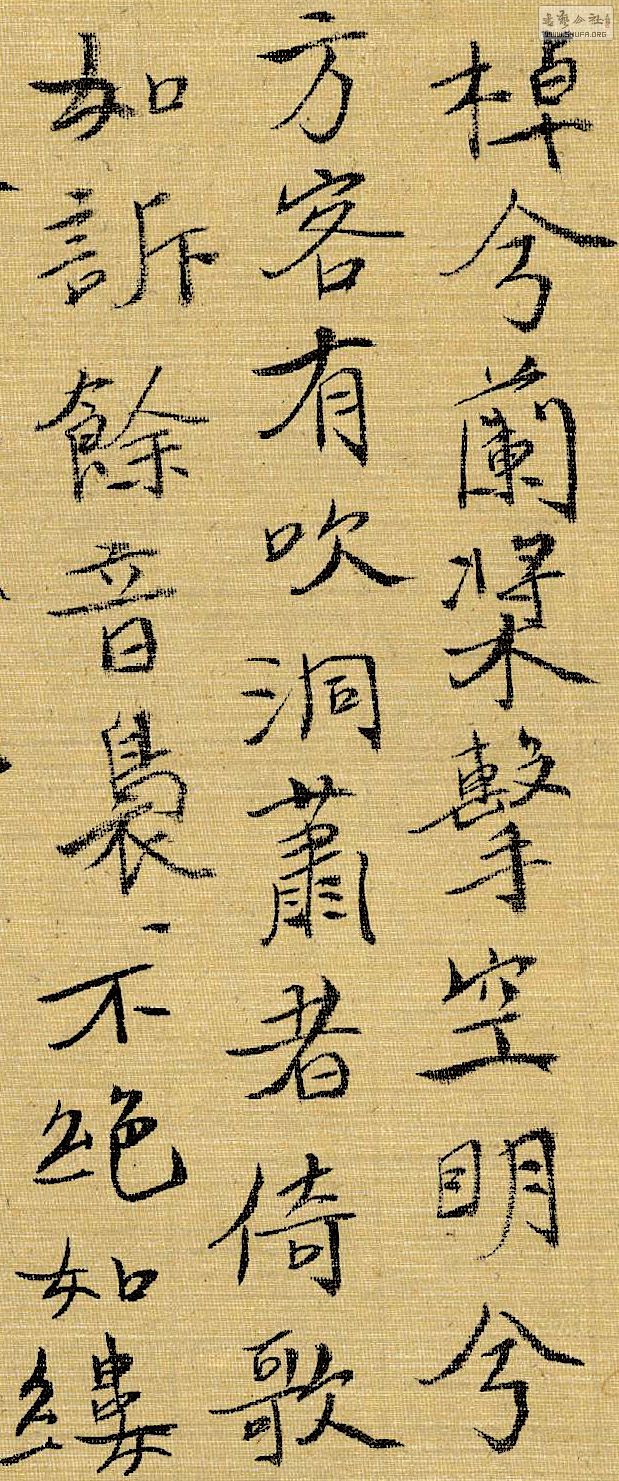 棹兮蘭槳擊空明兮
方客有吹洞蕭者倚歌
如訴餘音裊一不絕如縷
WWW.SHUFA.ORG